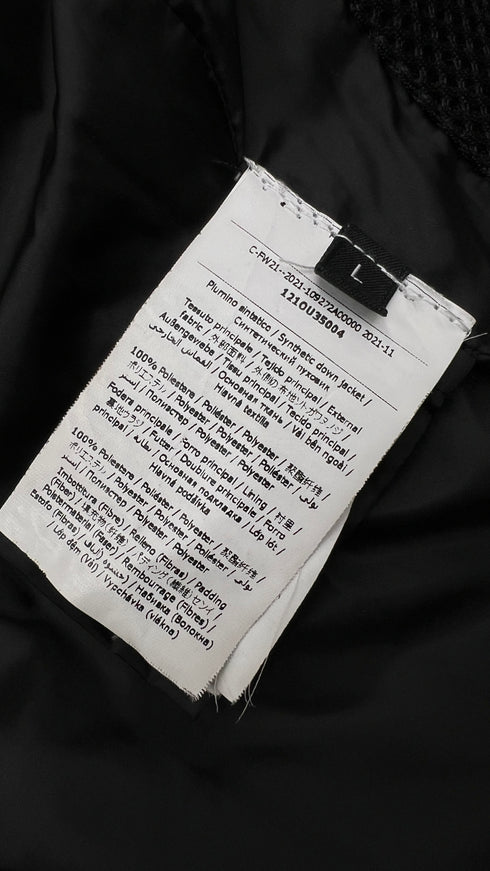 L
C-FW21--2021-109272A00000 2021-11
1210U35004
Piumino sintetico / Synthetic down jacket /
Синтетический пуховик
Tessuto principale / Tejido principal / External
fabric / 外部面料 /
Außengewebe / Tissu principal / Tecido principal /
القماش الخارجي / Основная ткань / Vải bên ngoài /
Hlavná textília
100% Poliestere / Poliéster / Polyester / 聚酯纤维 /
ポリエステル / Polyester / Polyester / Poliéster /
بوليستر / Полиэстер / Polyester / Polyester
Fodera principale / Forro principal / Lining / 衬里 /
Futter / Doublure principale / Forro
principal / بطانة / Основная подкладка / Lớp lót /
Hlavná podšívka
100% Poliestere / Poliéster / Polyester / 聚酯纤维 /
ポリエステル / Polyester / Polyester / Poliéster /
بوليستر / Полиэстер / Polyester / Polyester
Imbottitura (Fibre) / Relleno (Fibras) / Padding
(Fiber) / 填充物 (纤维) /
Polstermaterial (Faser) / Rembourrage (Fibres) /
Estofo (Fibras) / Набивка (Волокна)
/ Lớp đệm (Vải) / Vypchávka (vlákna)